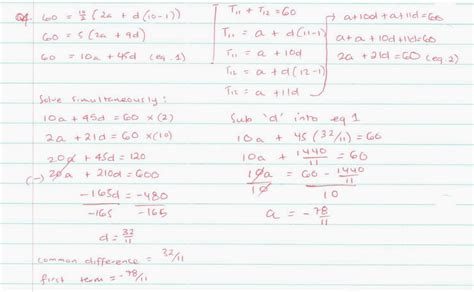 Q4. 60 = 10/2 (2a + d(10-1))
60 = 5 (2a + 9d)
60 = 10a + 45d (eq.1)
T₁₁ + T₁₂ = 60
T₁₁ = a + d(11-1)
T₁₁ = a + 10d
T₁₂ = a + d(12-1)
T₁₂ = a + 11d
a+10d+a+11d=60
a+a+10d+11d=60
2a + 21d = 60 (eq.2)
Solve simultaneously:
10a + 45d = 60 × (2)
2a + 21d = 60 × (10)
20a + 45d = 120
(-) 20a + 210d = 600
-165d = -480
-165 -165
d = 32/11
common difference = 32/11
first term = -78/11
Sub 'd' into eq 1
10a + 45 (32/11) = 60
10a + 1440/11 = 60
10a = 60 - 1440/11
10 10
a = -78/11